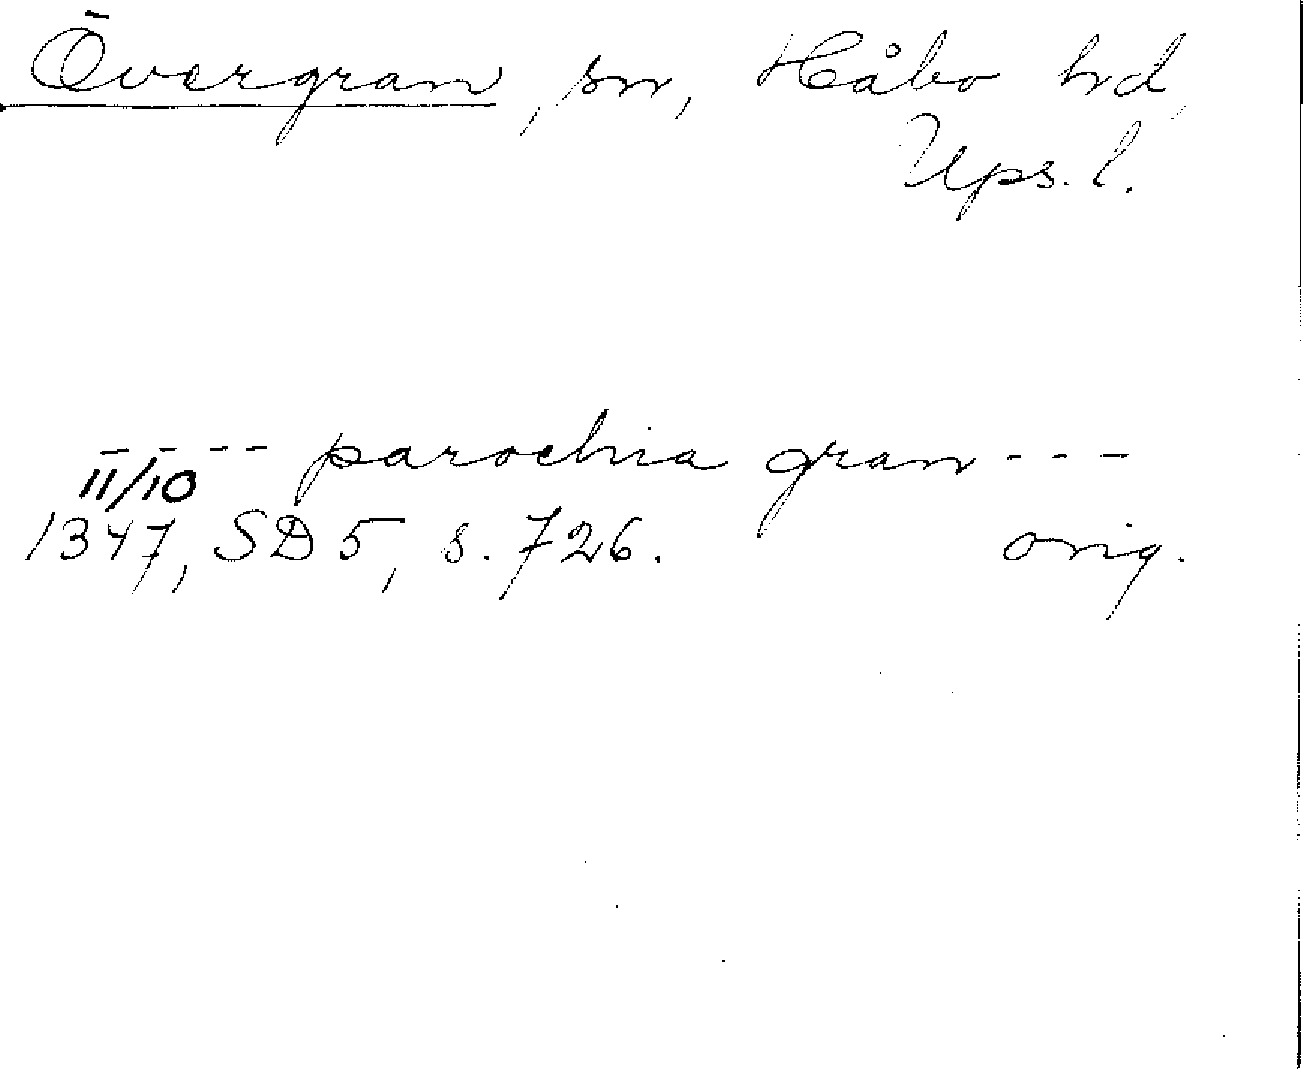 Övergran, sn, Håbo hd,
Ups. l.
---- parochia gran ---
11/10
1347, SD 5, s. 726. orig.